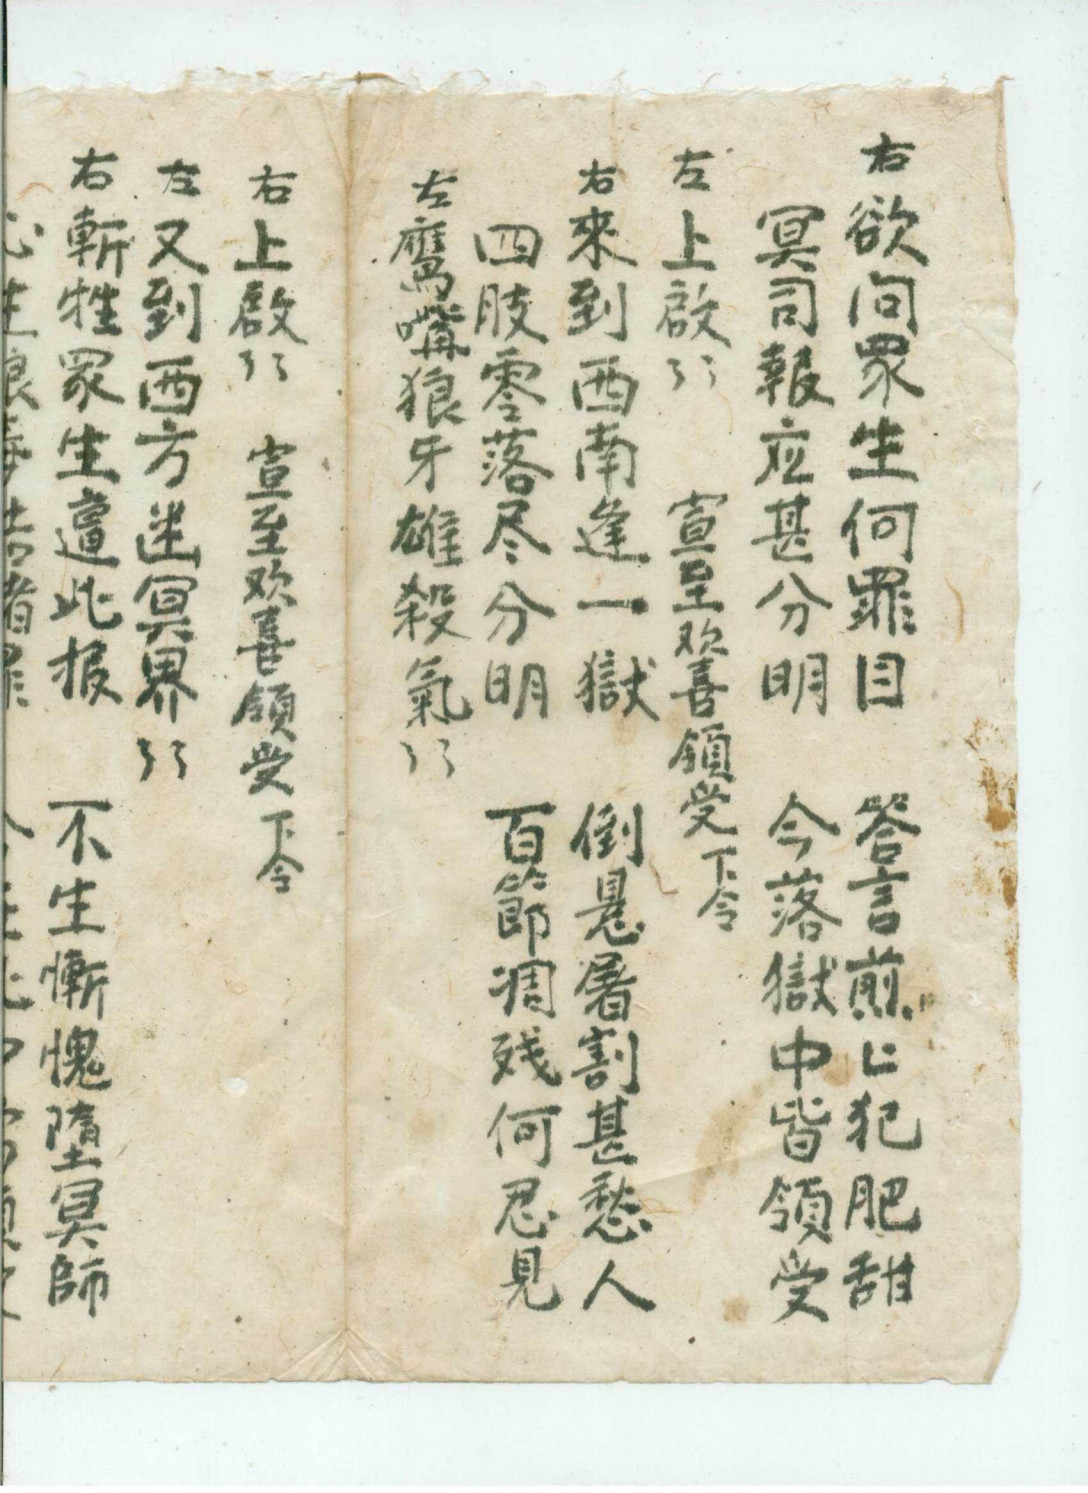 右欲问眾生何罪目　答言煎亡犯肥甜
冥司報应甚分明　今落獄中皆領受
左上啟〻　宣至欢喜領受下令
右來到西南逢一獄　倒悬屠割甚愁人
四肢零落尽分明　百節凋残何忍見
左鷹嘴狼牙雄殺氣〻
右上啟〻　宣至欢喜領受下令
左又到西方迷冥界〻
右斬牲眾生遭此报　不生慚愧墮冥師